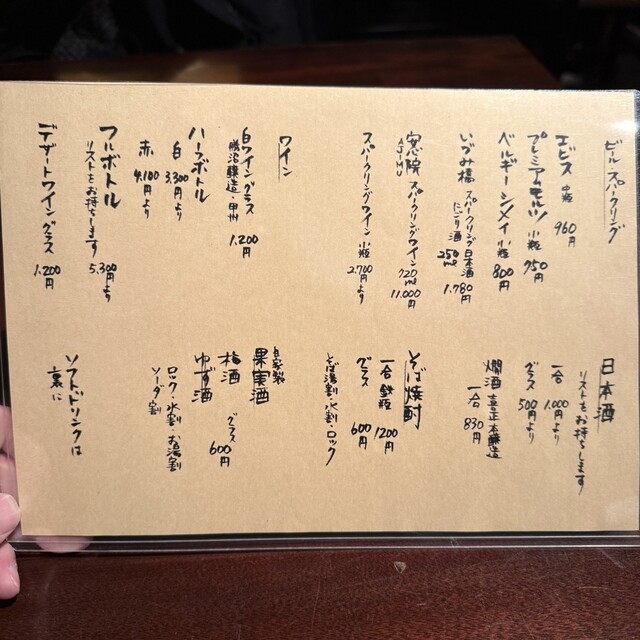 ビール スパークリング
エビス 中瓶 960円
プレミアムモルツ 小瓶 750円
ベルギーシメイ 小瓶 800円
いづみ橋 スパークリング日本酒 にごり酒 250ml 1.780
安心院 スパークリングワイン 720ml 11.000円
AJIMU
スパークリングワイン 小瓶 2.700円より
ワイン
白ワイングラス 1.200円
勝沼醸造・甲州
ハーフボトル
白 3.300円より
赤 4.100円より
フルボトル
リストをお持ちします 5.300円より
デザートワイングラス 1.200円
日本酒
リストをお持ちします
一合 1.000円より
グラス 500円より
燗酒 喜正 本醸造
一合 830円
そば焼酎
一合 鉄瓶 1200円
グラス 600円
そば湯割 水割 ロック
自家製
果実酒
梅酒
ゆず酒 グラス 600円
ロック・水割・お湯割
ソーダ割
ソフトドリンクは
裏に